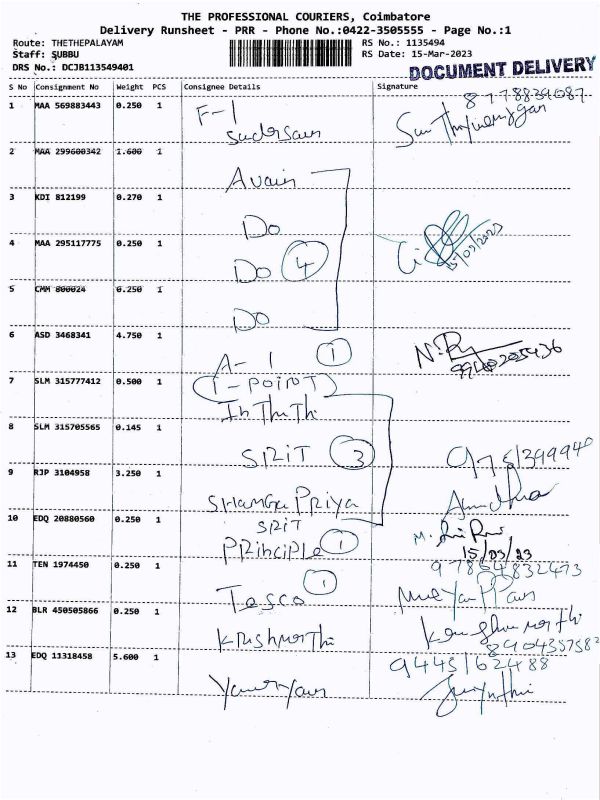 THE PROFESSIONAL COURIERS, Coimbatore
Delivery Runsheet - PRR - Phone No.:0422-3505555 - Page No.:1
Route: THETHEPALAYAM RS No.: 1135494
Staff: SUBBU RS Date: 15-Mar-2023
DRS No.: DCJB113549401 DOCUMENT DELIVERY
S No Consignment No Weight PCS Consignee Details Signature
8778839087
1 MAA 569883443 0.250 1 F-1
2 MAA 299600342 1.600 1
3 KDI 812199 0.270 1
Do
4 MAA 295117775 0.250 1
Do 4 15/03/2023
5 CMM 800024 0.250 1
Do
6 ASD 3468341 4.750 1
A-1 1
7 SLM 315777412 0.500 1 (1-POINT)
8 SLM 315705565 0.145 1
SRIT 3
9 RJP 3104958 3.250 1
SHAMGA PRIYA
10 EDQ 20880560 0.250 1 SRIT
PRINCIPLE 1 15/03/23
11 TEN 1974450 0.250 1 1
Tesco
12 BLR 450505866 0.250 1
13 EDQ 11318458 5.600 1 9445162488